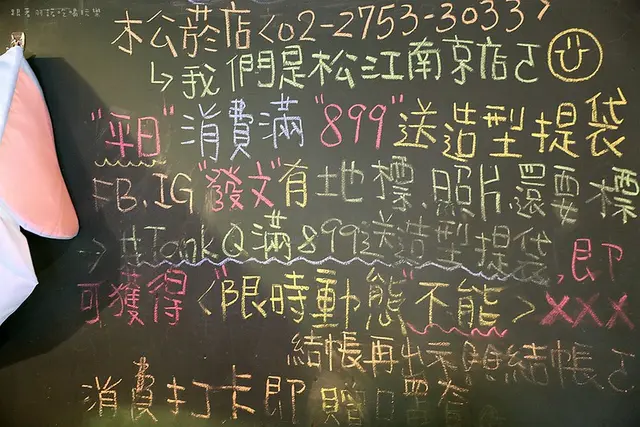 松菸店<02-2753-3033>
↳我們是松江南京店ㄛ☺
"平日"消費滿"899"送造型提袋
FB.IG"發文"有地標、照片、還要標
→#TankQ滿899送造型提袋,即
可獲得<"限時動態"不能>XXX
結帳再出示照結帳ㄛ
消費打卡即贈